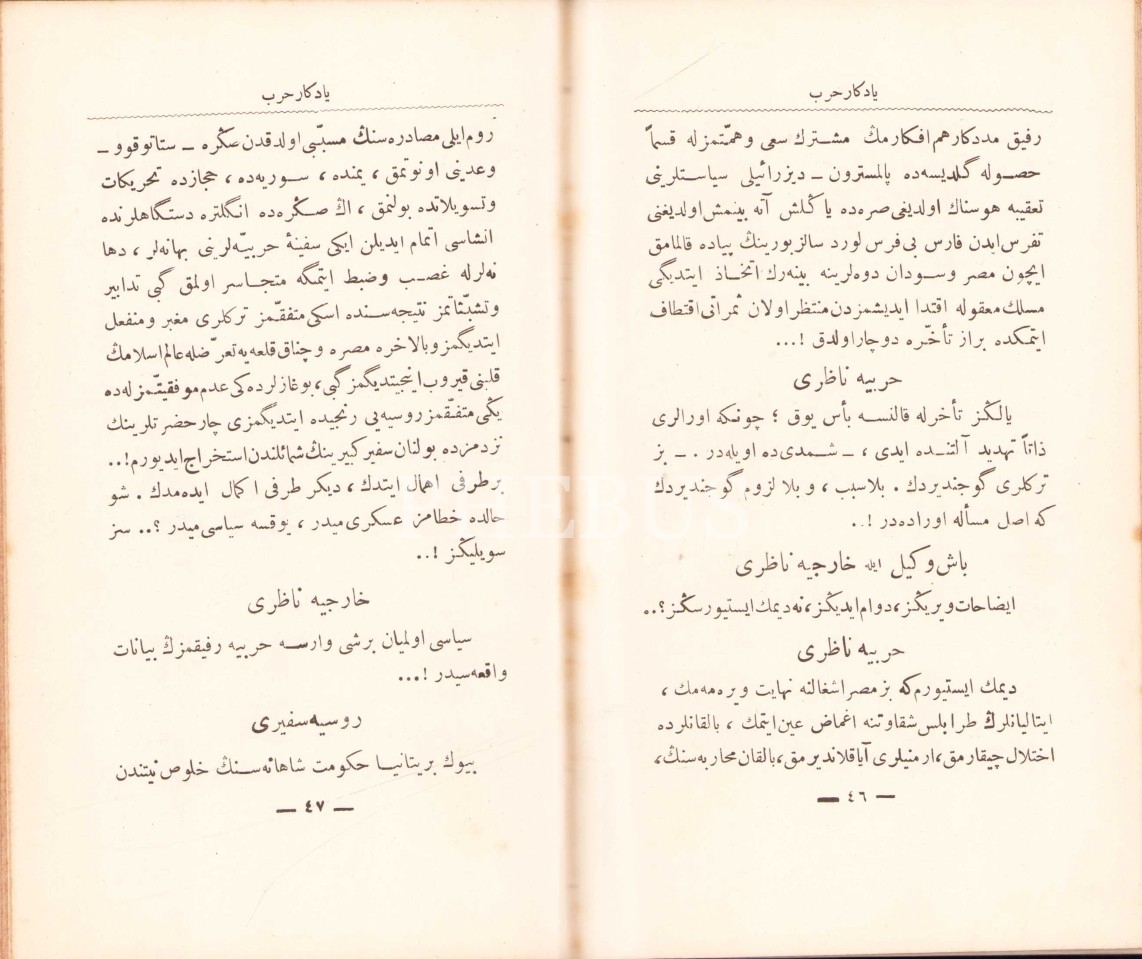 يادكار حرب
رفيق مددكار هم افكارمڭ مشترك سعى وهمّتمزله قسماً
حصوله گلديسه‌ده پالمسترون ـ ديزرائيلى سياستلرينى
تعقيبه هوسناك اولديغى صره‌ده ياڭلش آته بينمش اولديغنى
تفرس ايدن فارس بى فرس لورد سالزبورينڭ پياده قالمامق
ايچون مصر وسودان دوه‌لرينه بينه‌رك اتخاذ ايتديگى
مسلك معقوله اقتدا ايديشمزدن منتظر اولان ثمراتى اقتطاف
ايتمكده براز تأخّره دوچار اولدق !...
حربيه ناظرى
يالكز تأخرله قالنسه بأس يوق ؛ چونكه اورالرى
ذاتاً تهديد آلتنده ايدى ، ـ شمدى‌ده اويله‌در . ـ بز
تركلرى گوجنديردك . بلاسبب ، و بلا لزوم گوجنديردك
كه اصل مسأله اوراده‌در !..
باش وكيل ايله خارجيه ناظرى
ايضاحات ويريڭز ، دوام ايديڭز ، نه ديمك ايستيورسڭز ؟..
حربيه ناظرى
ديمك ايستيورم كه بز مصر اشغالنه نهايت ويره‌مه‌مك ،
ايتاليانلرڭ طرابلس شقاوتنه اغماض عين ايتمك ، بالقانلرده
اختلال چيقارمق ، ارمنيلرى آياقلانديرمق ، بالقان محاربه‌سنڭ ،
— ٤٦ —
يادكار حرب
روم ايلى مصادره‌سنڭ مسبّبى اولدقدن صڭره ـ ستاتوقوو ـ
وعدينى اونوتمق ، يمنده ، سوريه‌ده ، حجازده تحريكات
وتسويلاتده بولنمق ، اڭ صڭره‌ده انگلتره دستگاهلرنده
انشاسى اتمام ايديلن ايكى سفينهٔ حربيّه‌لرينى بهانه‌لر ، دها
نه‌لرله غصب وضبط ايتمگه متجاسر اولمق گبى تدابير
وتشبّثاتمز نتيجه‌سنده اسكى متفقّمز تركلرى مغبر ومنفعل
ايتديگمز وبالاخره مصره وچناق قلعه‌يه تعرّضله عالم اسلامڭ
قلبنى قيروب اينجيتديگمز گبى ، بوغازلرده‌كى عدم موفقيتّمزله‌ده
يڭى متفّقمز روسيه‌يى رنجيده ايتديگمزى چار حضرتلرينڭ
نزدمزده بولنان سفير كبيرينڭ شمائلندن استخراج ايديورم !..
بر طرفى اهمال ايتدك ، ديكر طرفى اكمال ايده‌مدك . شو
حالده خطامز عسكرى ميدر ، يوقسه سياسى ميدر ؟.. سز
سويليڭز !..
خارجيه ناظرى
سياسى اولميان برشى وارسه حربيه رفيقمزڭ بيانات
واقعه‌سيدر !...
روسيه سفيرى
بيوك بريتانيا حكومت شاهانه‌سنڭ خلوص نيتندن
— ٤٧ —